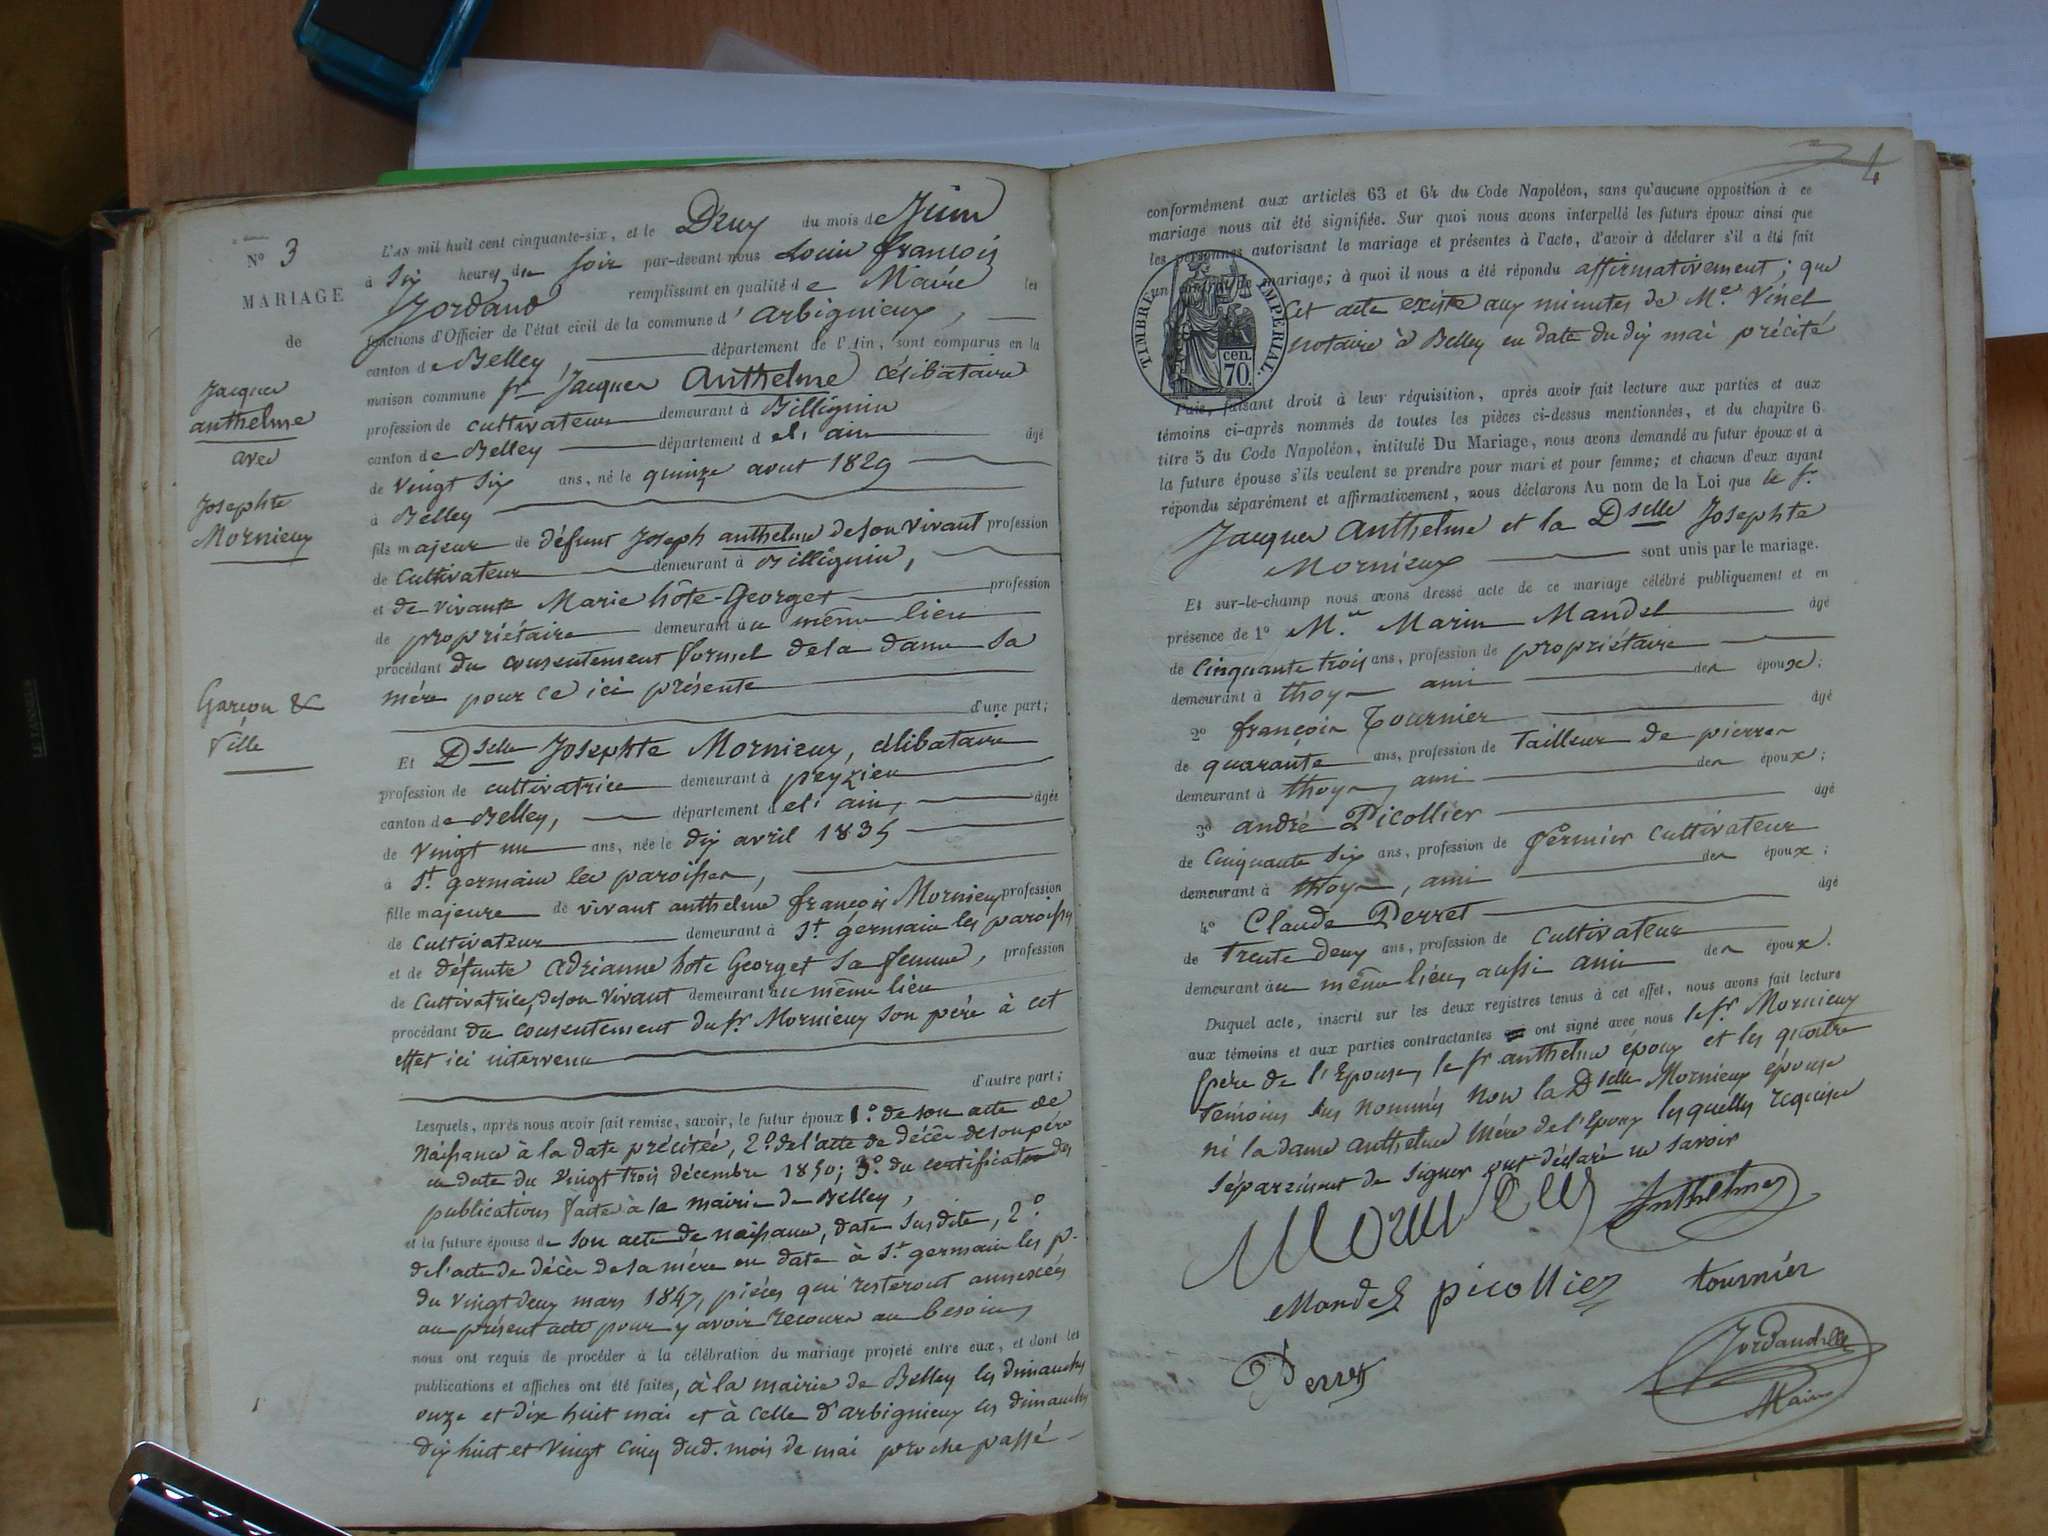 N° 3
MARIAGE
de
Jacques
anthelme
avec
Josephte
Mornieux
Garçon &
fille
L'AN mil huit cent cinquante-six, et le Deux du mois de Juin
à Six heures du soir par-devant nous Louis françois
Jordand remplissant en qualité de Maire les
fonctions d'Officier de l'état civil de la commune d'arbignieux,
canton de Belley, département de l'Ain, sont comparus en la
maison commune Sr Jacques Anthelme célibataire
profession de cultivateur demeurant à Billignin
canton de Belley département de l'ain âgé
de vingt six ans, né le quinze aout 1829
à Belley
fils majeur de défunt Joseph anthelme de son vivant profession
de Cultivateur demeurant à Billignin,
et de vivante Marie hôte-Georget profession
de propriétaire demeurant au même lieu
procédant du consentement formel de la dame sa
mère pour ce ici présente
d'une part;
Et Dselle Josephte Mornieux, célibataire
profession de cultivatrice demeurant à peyzieu
canton de Belley, département de l'ain, âgée
de vingt un ans, née le dix avril 1835
à St. germain les paroisses,
fille majeure de vivant anthelme françois Mornieux profession
de Cultivateur demeurant à St. germain les paroisses
et de défunte adrianne hote Georget sa femme, profession
de Cultivatrice, de son vivant demeurant au même lieu
procédant du consentement du Sr. Mornieux son père à cet
effet ici intervenu
d'autre part;
Lesquels, après nous avoir fait remise, savoir, le futur époux 1.° de son acte de
Naissance à la date précitée, 2.° de l'acte de décès de son père
en date du vingt trois décembre 1850; 3.° du certificat des
publications faites à la mairie de Belley,
et la future épouse de son acte de naissance, date susdite, 2.°
de l'acte de décès de sa mère en date à St. germain les p.
du vingt deux mars 1847, pièces qui resteront annexées
au présent acte pour y avoir recours au besoin,
nous ont requis de procéder à la célébration du mariage projeté entre eux, et dont les
publications et affiches ont été faites, à la mairie de Belley les dimanches
onze et dix huit mai et à celle d'arbignieux les dimanches
dix huit et vingt cinq dud. mois de mai proche passé
4
conformément aux articles 63 et 64 du Code Napoléon, sans qu'aucune opposition à ce
mariage nous ait été signifiée. Sur quoi nous avons interpellé les futurs époux ainsi que
les personnes autorisant le mariage et présentes à l'acte, d'avoir à déclarer s'il a été fait
un contrat de mariage; à quoi il nous a été répondu affirmativement; que
Cet acte existe aux minutes de Me. Vinel
notaire à Belley en date du dix mai précité
TIMBRE IMPÉRIAL.
cen.
70.
Puis, faisant droit à leur réquisition, après avoir fait lecture aux parties et aux
témoins ci-après nommés de toutes les pièces ci-dessus mentionnées, et du chapitre 6
titre 5 du Code Napoléon, intitulé Du Mariage, nous avons demandé au futur époux et à
la future épouse s'ils veulent se prendre pour mari et pour femme; et chacun d'eux ayant
répondu séparément et affirmativement, nous déclarons Au nom de la Loi que le Sr.
Jacques Anthelme et la Dselle Josephte
Mornieux sont unis par le mariage.
Et sur-le-champ nous avons dressé acte de ce mariage célébré publiquement et en
présence de 1° Marin Mandel âgé
de Cinquante trois ans, profession de propriétaire
demeurant à thoys ami des époux;
2° françois Tournier âgé
de quarante ans, profession de Tailleur de pierres
demeurant à thoys, ami des époux;
3° andré Picollier âgé
de Cinquante six ans, profession de fermier cultivateur
demeurant à thoys, ami des époux;
4° Claude Perret âgé
de Trente deux ans, profession de Cultivateur
demeurant au même lieu, aussi ami des époux.
Duquel acte, inscrit sur les deux registres tenus à cet effet, nous avons fait lecture
aux témoins et aux parties contractantes ont signé avec nous le Sr. Mornieux
père de l'Epouse, le Sr anthelme époux et les quatre
témoins sus nommés Non la Dselle Mornieux épouse
ni la dame anthelme mère de l'Epoux lesquelles requises
séparément de signer ont déclaré ne savoir
Anthelme
Mandel picollier tournier
Perret
Jordand
Maire